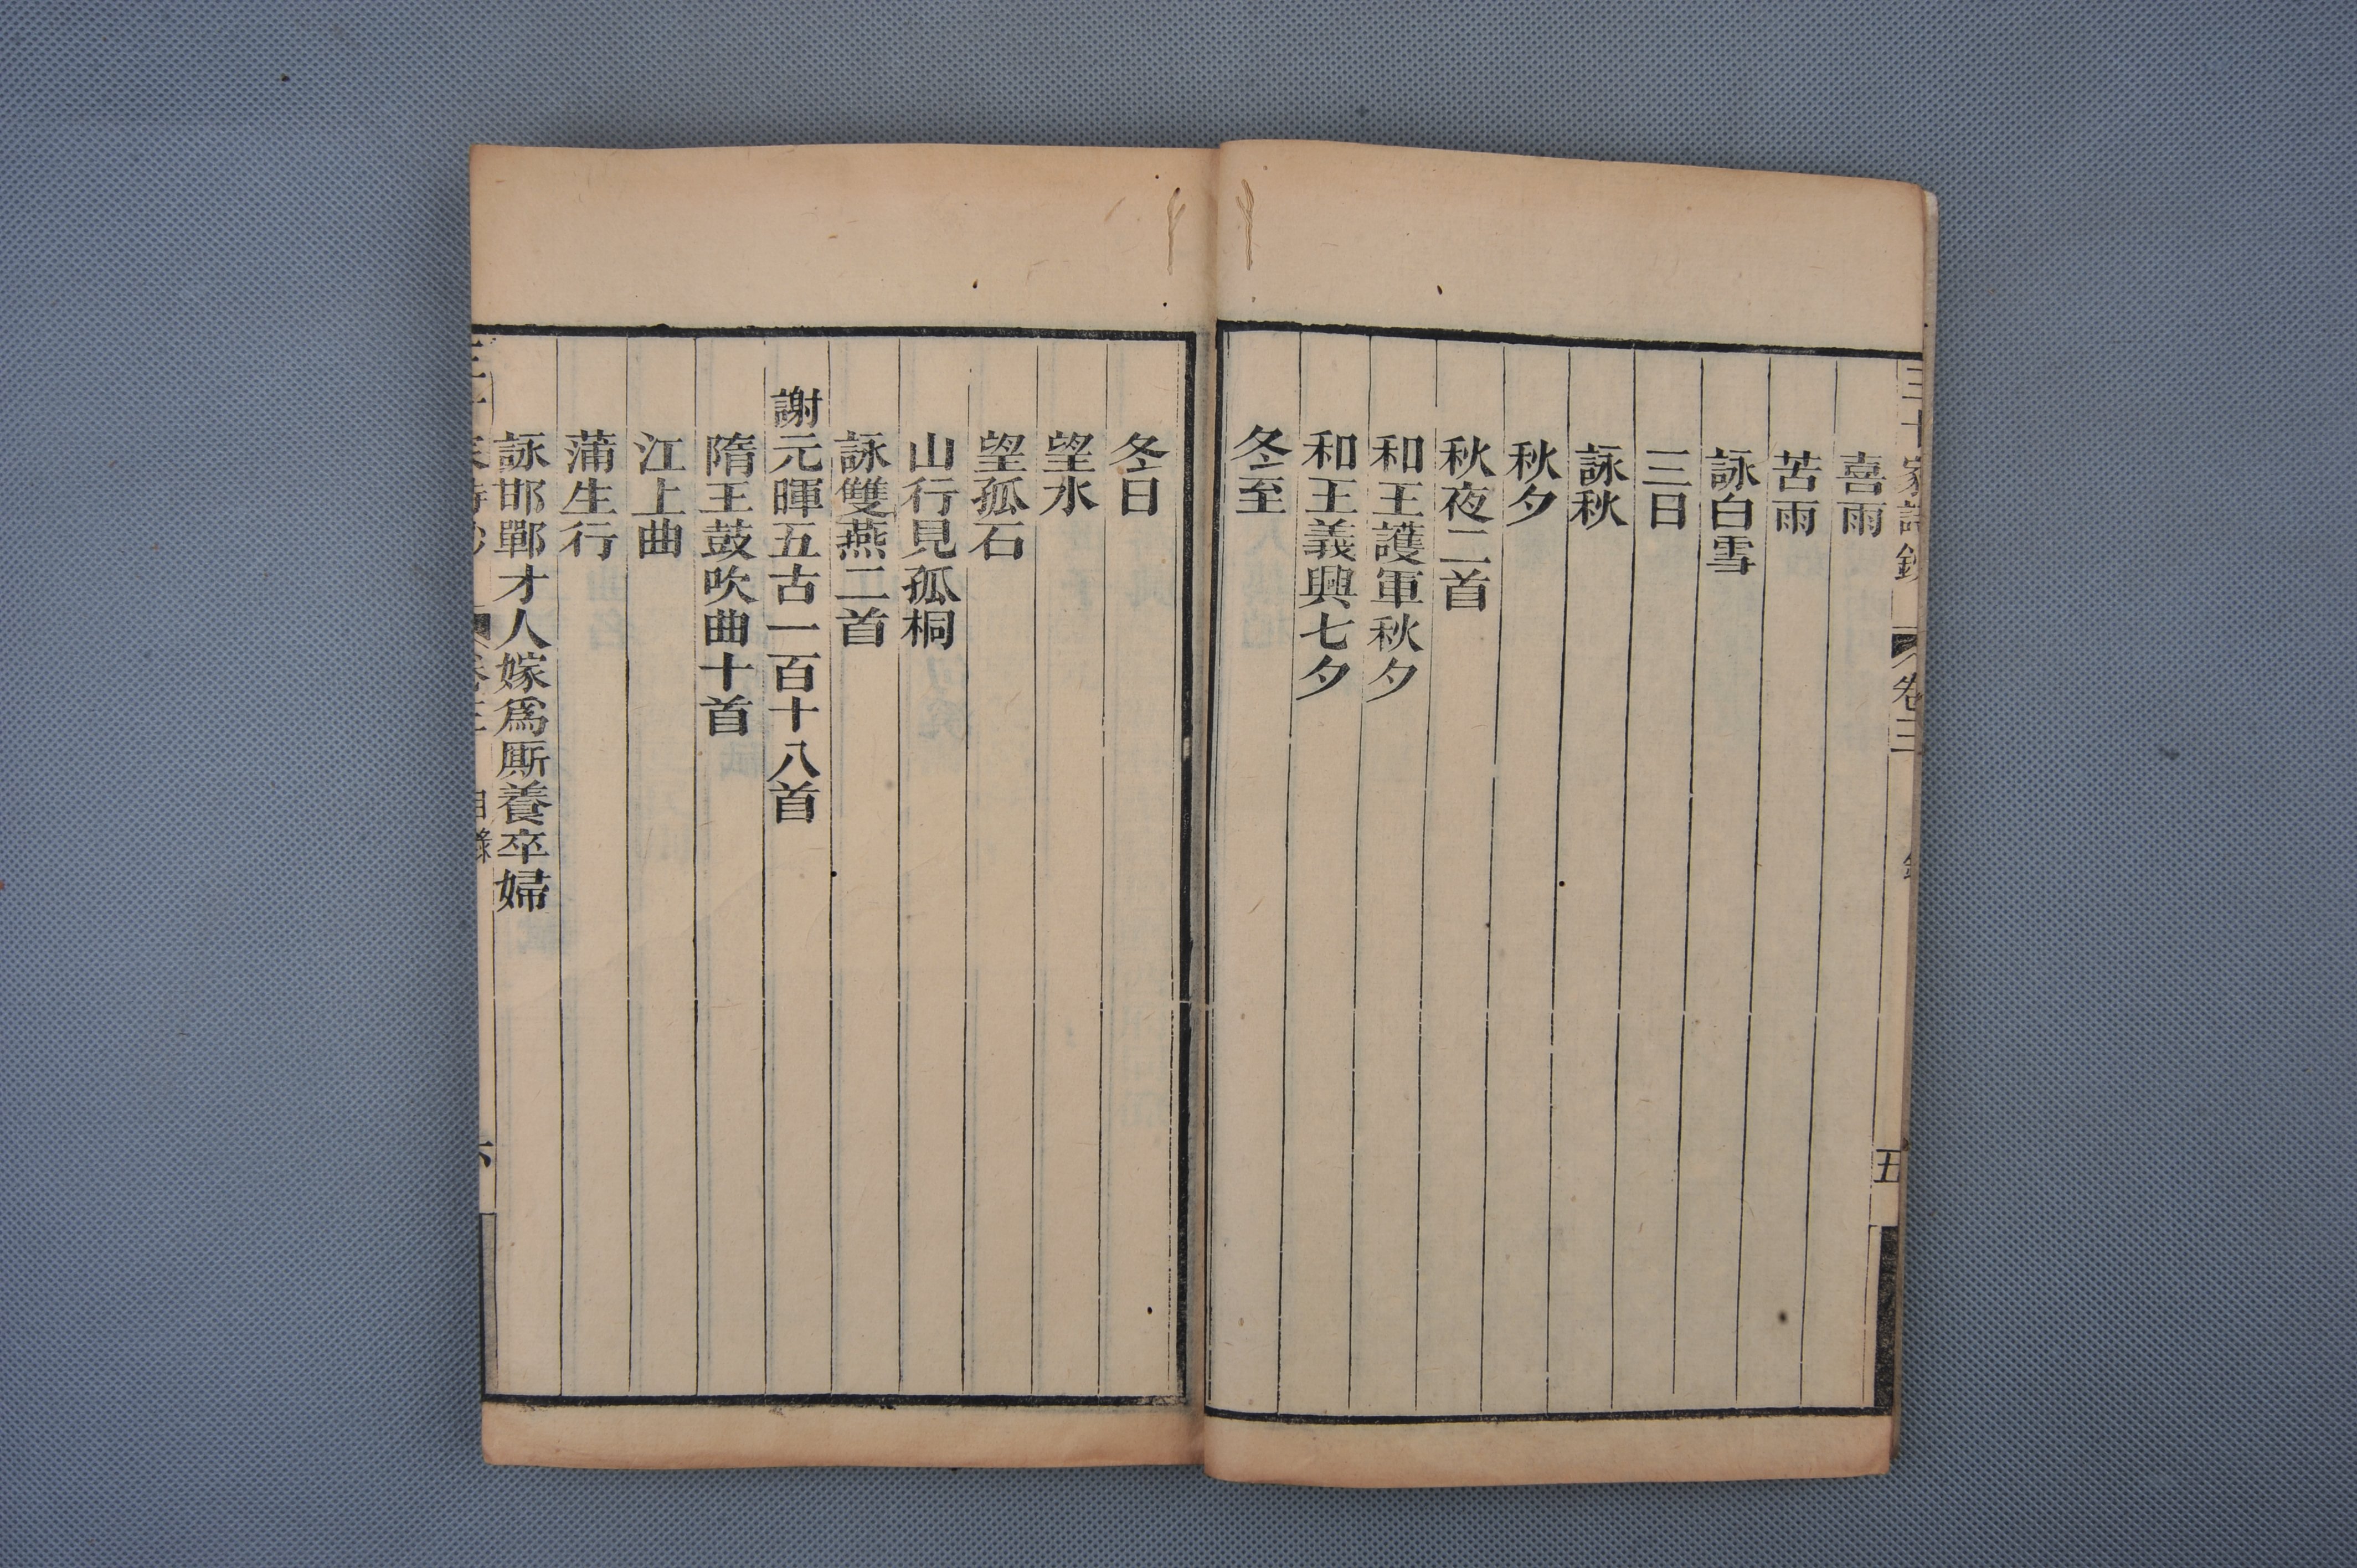 三十家詩鈔 卷三 五
喜雨
苦雨
詠白雪
三日
詠秋
秋夕
秋夜二首
和王護軍秋夕
和王義興七夕
冬至
冬日
望水
望孤石
山行見孤桐
詠雙燕二首
謝元暉五古一百十八首
隋王鼓吹曲十首
江上曲
蒲生行
詠邯鄲才人嫁爲厮養卒婦
卷三 目錄 六